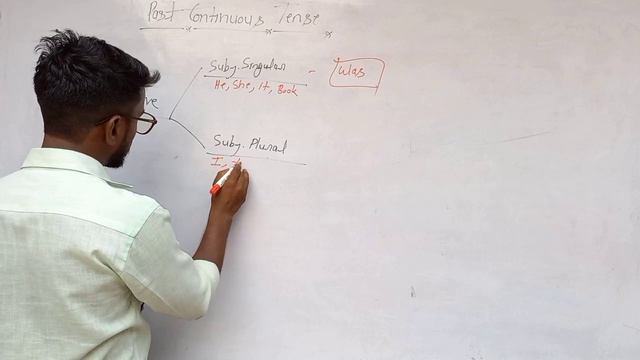 Past Continuous Tense
Subj. Singular - Was
He, She, It, Book
ve
Subj. Plural
I,